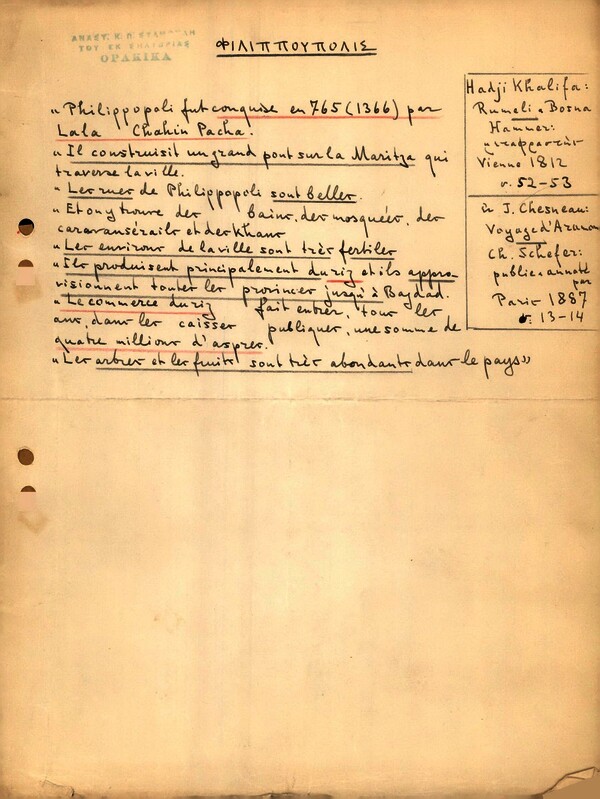 ΤΟΥ ΕΚ
ΘΡΑΚΙΚΑ
ΦΙΛΙΠΠΟΥΠΟΛΙΣ
« Philippopoli fut conquise en 765 (1366) par
Lala Chahin Pacha.
« Il construisit un grand pont sur la Maritza qui
traverse la ville.
« Les rues de Philippopoli sont belles.
« Et on y trouve des bains, des mosquées, des
caravansérails et des khans
« Les environs de la ville sont très fertiles
« Ils produisent principalement du riz et ils appro-
visionnent toutes les provinces jusqu'à Bagdad.
« Le commerce du riz fait entrer, tous les
ans, dans les caisses publiques, une somme de
quatre millions d'aspres.
« Les arbres et les fruits sont très abondants dans le pays »
Hadji Khalifa:
Rumeli u. Bosna
Hammer:
μεταφραστὴς
Vienne 1812
σ. 52-53
J. Chesneau:
Voyage d'Aramon
Ch. Schefer:
publié et annoté
par
Paris 1887
σ. 13-14